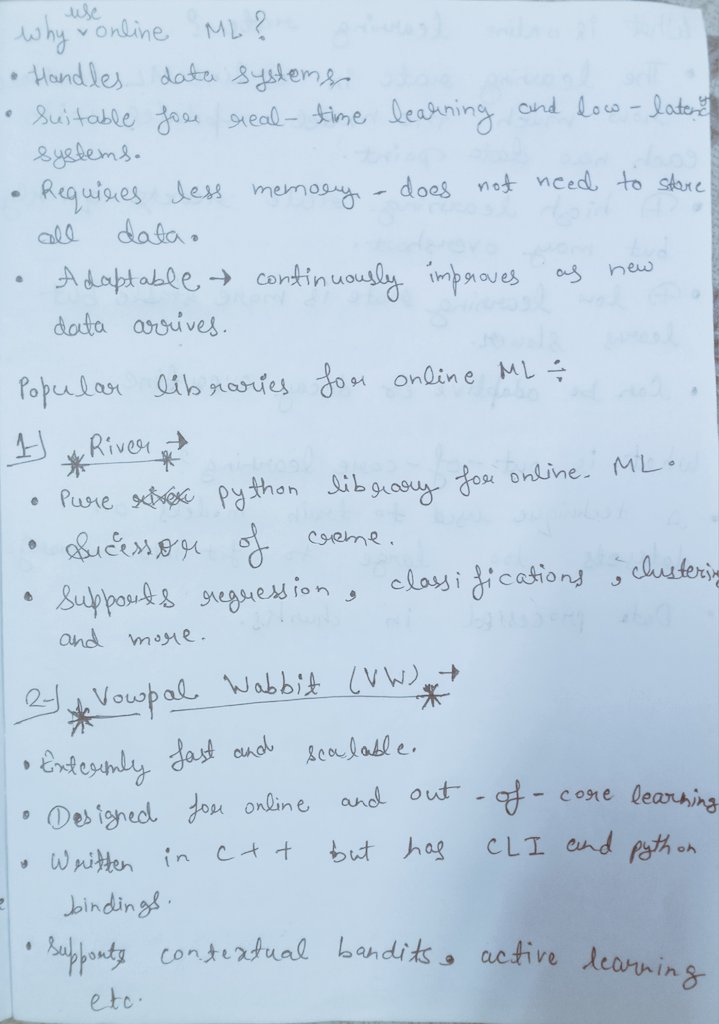 why use online ML?
• Handles data systems.
• Suitable for real-time learning and low-latency
systems.
• Requires less memory - does not need to store
all data.
• Adaptable → continuously improves as new
data arrives.
Popular libraries for online ML ÷
1-) River →
• Pure python library for online ML.
• Sucessor of creme.
• Supports regression, classifications, clustering
and more.
2-) Vowpal Wabbit (VW) →
• Extermly fast and scalable.
• Designed for online and out-of-core learning
• Written in C++ but has CLI and python
bindings.
• Supports contextual bandits, active learning
etc.